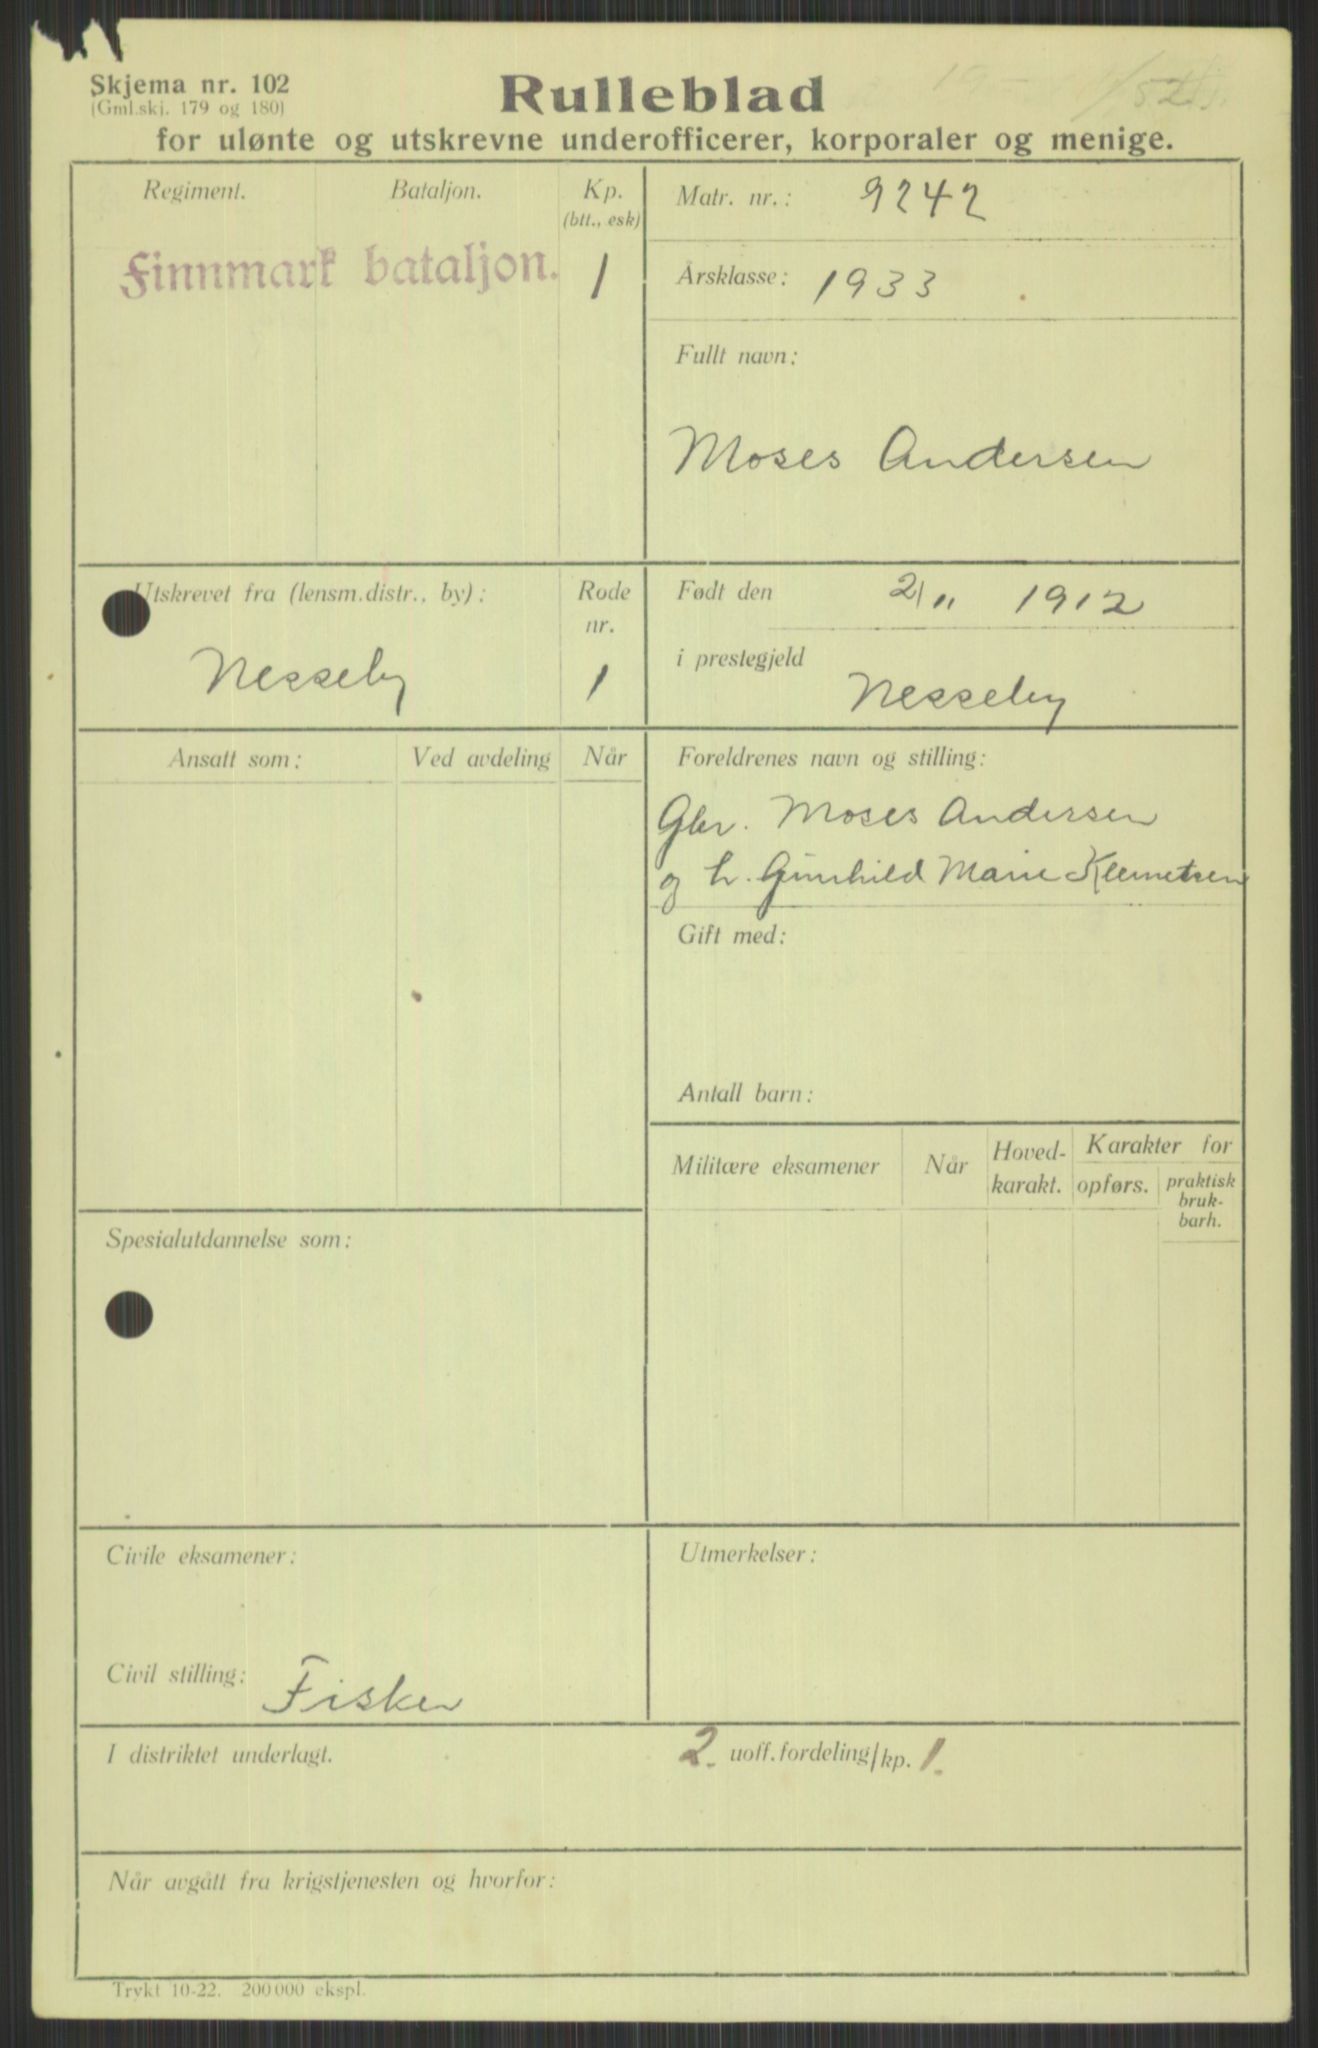 Skjema nr. 102
(Gml.skj. 179 og 180)
Rulleblad
for ulønte og utskrevne underofficerer, korporaler og menige.
Regiment. Bataljon. Kp.
(btt., esk)
Finnmark bataljon. 1
Matr. nr.: 9242
Årsklasse: 1933
Fullt navn:
Moses Andersen
Utskrevet fra (lensm.distr., by): Rode
nr.
Nesseby 1
Født den 2/11 1912
i prestegjeld
Nesseby
Ansatt som: Ved avdeling Når
Foreldrenes navn og stilling:
Gbr. Moses Andersen
og h. Gunhild Marie Klemetsen
Gift med:
Antall barn:
Militære eksamener Når Hoved-
karakt. Karakter for
opførs. praktisk
bruk-
barh.
Spesialutdannelse som:
Civile eksamener:
Utmerkelser:
Civil stilling: Fisker
I distriktet underlagt. 2. uoff.fordeling/kp. 1.
Når avgått fra krigstjenesten og hvorfor:
Trykt 10-22. 200 000 ekspl.